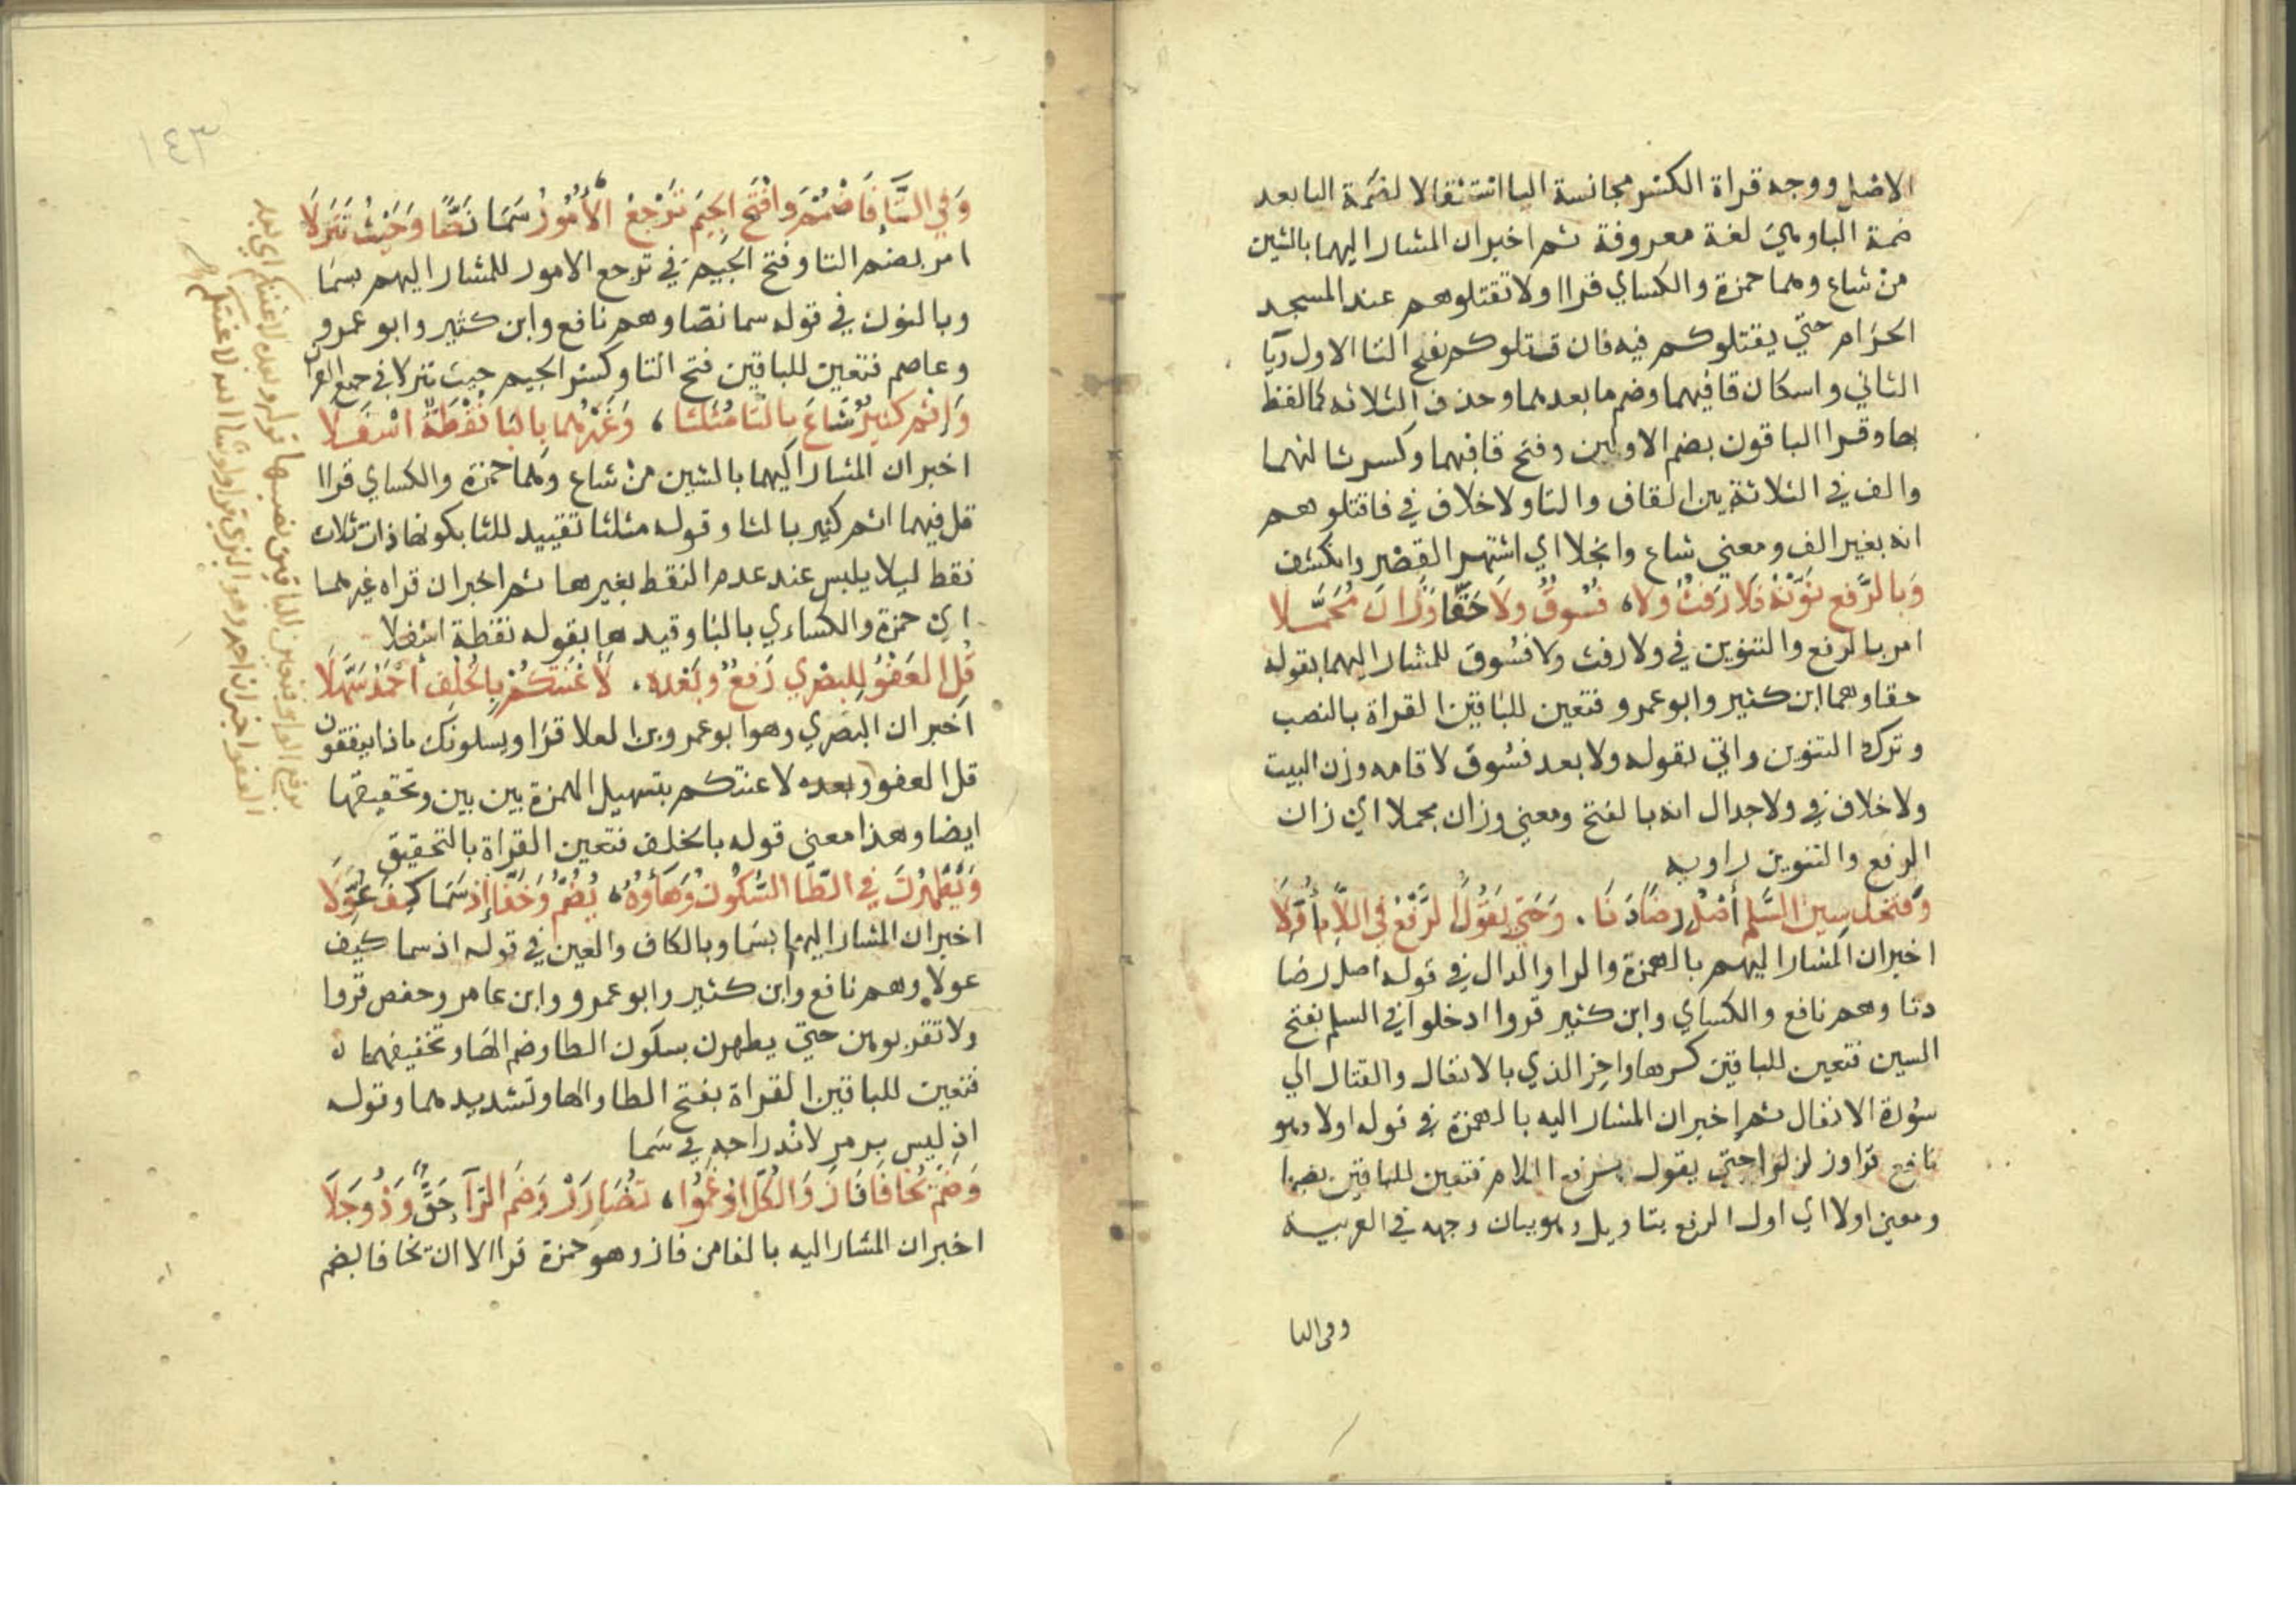 الاصل ووجه قراة الكسر مجانسة اليا استثقالا لضمة اليا بعد
ضمة الباوهي لغة معروفة ثم اخبران المشار اليهما بالشين
من شاع وهما حمزة والكساي قراا ولا تقتلوهم عند المسجد
الحرام حتي يقتلوكم فيه فان قتلوكم بفتح التا الاول ويا
الثاني واسكان قافيهما وضم ما بعدهما وحذف الثلاثه كما لفظ
بها وقرا الباقون بضم الاولين وفتح قافيهما وكسر ثالثهما
والف في الثلاثة بين القاف والتا ولا خلاف في فاقتلوهم
انه بغير الف ومعني شاع وانجلا اي اشتهر القصر وانكشف
وَبالرَّفعِ نَوِّنْهُ فَلا رَفَثٌ ولا، فُسُوقٌ ولَا حَقًّا وَزَانَ مُجَمَّلا
امر بالرفع والتنوين في ولا رفث ولا فسُوق للمشار اليهما بقوله
حقا وهما ابن كثير وابو عمرو فتعين للباقين القراة بالنصب
وترك التنوين واتي بقوله ولا بعد فسُوق لاقامه وزن البيت
ولا خلاف في ولا جدال انه بالفتح ومعني وزان مجملا اي زان
الرفع والتنوين راويه
وَفَتْحُكَ سِينَ السَّلمِ أصْلُ رِضًا دَنَا . وَحَتي يَقُولُ الرَّفْعُ في اللَّامِ أُوِّلَا
اخبران المشار اليهم بالهمزة والرا والدال في قوله اصل رضا
دنا وهم نافع والكساي وابن كثير قروا ادخلوا في السلم بفتح
السين فتعين للباقين كسرها واخر الذي بالانفال والقتال الي
سُورة الانفال ثم اخبران المشار اليه بالهمزة في قوله اولا وهو
نافع قرا وزلزلوا حتي يقول برفع اللام فتعين للباقين نصبها
ومعني اولا اي اول الرفع بتاويل وهو بيان وجهه في العربيه
وفي التا
١٤٣
وَفي التَّاءِ فَاضْمُمْ وافْتَح الجيمَ تَرْجِعُ الْأُمُورُ سَمَا نَصًّا وَحَيْثُ تَنَزَّلَا
امر بضم التا وفتح الجيم في ترجع الامور للمشار اليهم بسَمَا
وبالنون في قوله سما نصّا وهم نافع وابن كثير وابو عمرو
وعاصم فتعين للباقين فتح التا وكسر الجيم حيث تنزلا في جميع القرآن
وَإِثم كَثيرٌ شَاعَ بالثَّا مُثَلَّثا، وَغَيْرُهُما بالبَا نُقْطَةٌ اسْفَلَا
اخبران المشار اليهما بالشين من شاع وهما حمزة والكساي قراا
قل فيهما اثم كثير بالثا وقوله مثلثا تقييد للثا بكونها ذات ثلاث
نقط ليلا يلبس عند عدم النقط بغيرها ثم اخبران قراه غيرهما
اي حمزة والكساءي بالبا وقيدها بقوله نقطة اسفلا
قُلِ العَفْوُ لِلبصْري رَفعٌ وبَعْده. لَأَعْنَتَكُمْ بِالخُلفِ أحْمَدُ سَهَّلَا
اخبران البصري وهو ابو عمرو بن العلا قرا ويسلونك ماذا ينفقون
قل العفو وبعده لاعنتكم بتسهيل الهمزة بين بين وتحقيقها
ايضا وهذا معني قوله بالخلف فتعين القراة بالتحقيق
وَيَطْهُرْنَ في الطَّا السُّكونُ وَهَاؤُهُ، يُضَمُّ وَخَفَّا إِذ سَمَا كَيفَ عُوِّلَا
اخبران المشار اليهم بسَما وبالكاف والعين في قوله اذ سما كيف
عولا وهم نافع وابن كثير وابو عمرو وابن عامر وحفص قروا
ولا تقربوهن حتي يطهرن بسكون الطا وضم الها وتخفيفهما
فتعين للباقين القراة بفتح الطا والها وتشديدهما وقوله
اذ ليس برمز لاندراجه في سَما
وَضَمُّ يُخَافَا فَازَ وَالكُلُّ ادْغَمُوا، تُضَارَر وَضَم الرَّآءَ حَقٌّ وَذُو جَلَا
اخبران المشار اليه بالفا من فاز وهو حمزة قرا الا ان يخافا بضم
برفع الواو فتعين للباقين نصبها قوله وبعده لاعنتكم اي بعد
العفو اخبر ان احمد وهو البزي قرا ولو شا الله لاعنتكم